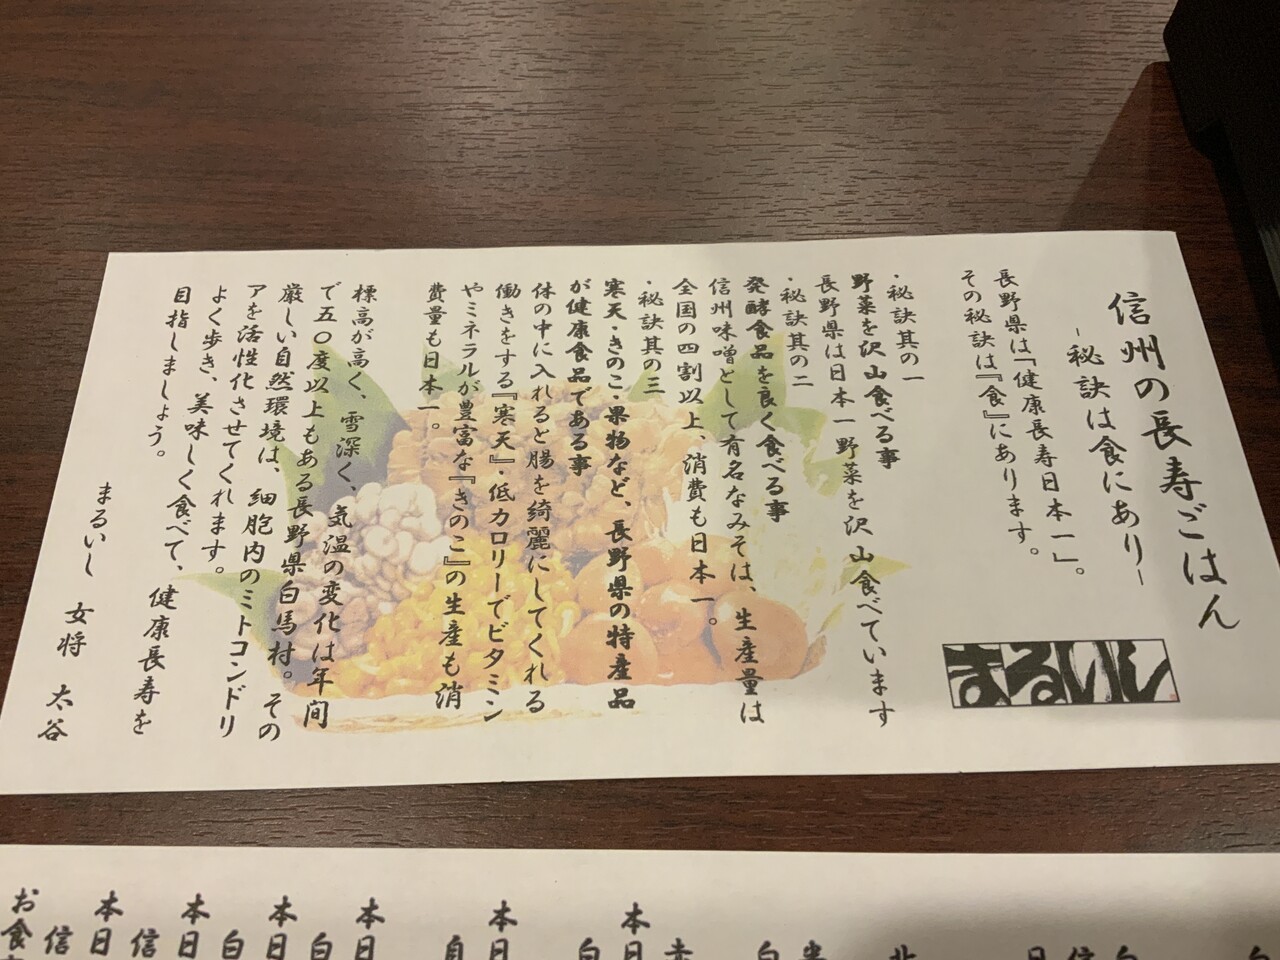 信州の長寿ごはん
-秘訣は食にあり-
まるいし
長野県は「健康長寿日本一」。
その秘訣は『食』にあります。
・秘訣其の一
野菜を沢山食べる事
長野県は日本一野菜を沢山食べています
・秘訣其の二
発酵食品を良く食べる事
信州味噌として有名なみそは、生産量は
全国の四割以上、消費も日本一。
・秘訣其の三
寒天・きのこ・果物など、長野県の特産品
が健康食品である事
体の中に入れると腸を綺麗にしてくれる
働きをする『寒天』・低カロリーでビタミン
やミネラルが豊富な『きのこ』の生産も消
費量も日本一。
標高が高く、雪深く、気温の変化は年間
で五〇度以上もある長野県白馬村。その
厳しい自然環境は、細胞内のミトコンドリ
アを活性化させてくれます。
よく歩き、美味しく食べて、健康長寿を
目指しましょう。
まるいし 女将 太谷
本日
本日
本日
信
本日
白
本日
白
信
お食